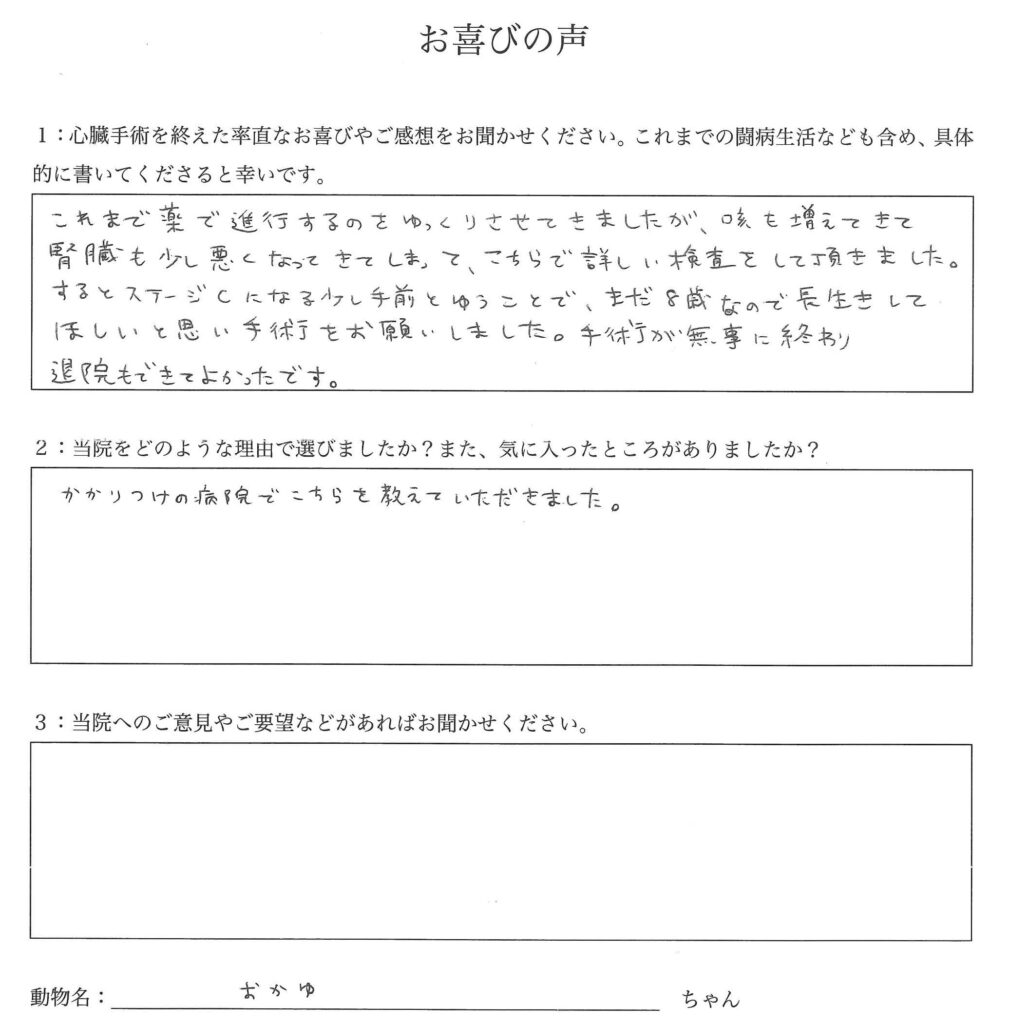 お喜びの声
1：心臓手術を終えた率直なお喜びやご感想をお聞かせください。これまでの闘病生活なども含め、具体
的に書いてくださると幸いです。
これまで薬で進行するのをゆっくりさせてきましたが、咳も増えてきて
腎臓も少し悪くなってきてしまって、こちらで詳しい検査をして頂きました。
するとステージCになる少し手前とゆうことで、まだ8歳なので長生きして
ほしいと思い手術をお願いしました。手術が無事に終わり
退院もできてよかったです。
2：当院をどのような理由で選びましたか？また、気に入ったところがありましたか？
かかりつけの病院でこちらを教えていただきました。
3：当院へのご意見やご要望などがあればお聞かせください。
動物名：おかゆ ちゃん